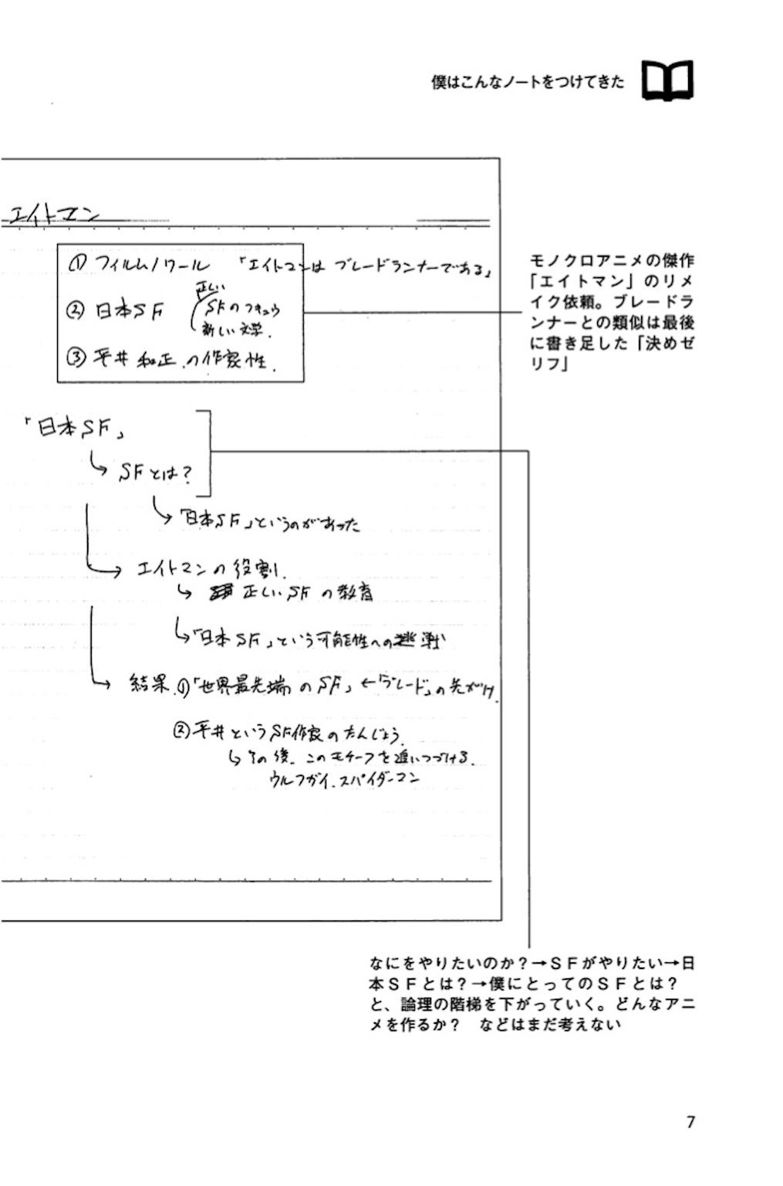 僕はこんなノートをつけてきた
エイトマン
① フィルムノワール 「エイトマンは ブレードランナーである」
② 日本SF
正しい
SFのフキュウ
新しい文学.
③ 平井和正.の作家性.
モノクロアニメの傑作
「エイトマン」のリメ
イク依頼。ブレードラ
ンナーとの類似は最後
に書き足した「決めゼ
リフ」
「日本SF」
↳ SFとは?
↳「日本SF」というのがあった
→ エイトマンの役割.
↳ 正しいSFの教育
↳「日本SF」という可能性への挑戦
→ 結果.①「世界最先端のSF」←「ブレード」の先がけ.
②平井というSF作家のたんじょう.
↳その後、このモチーフを追いつづける.
ウルフガイ.スパイダーマン
なにをやりたいのか?→SFがやりたい→日
本SFとは?→僕にとってのSFとは?
と、論理の階梯を下がっていく。どんなアニ
メを作るか? などはまだ考えない
7